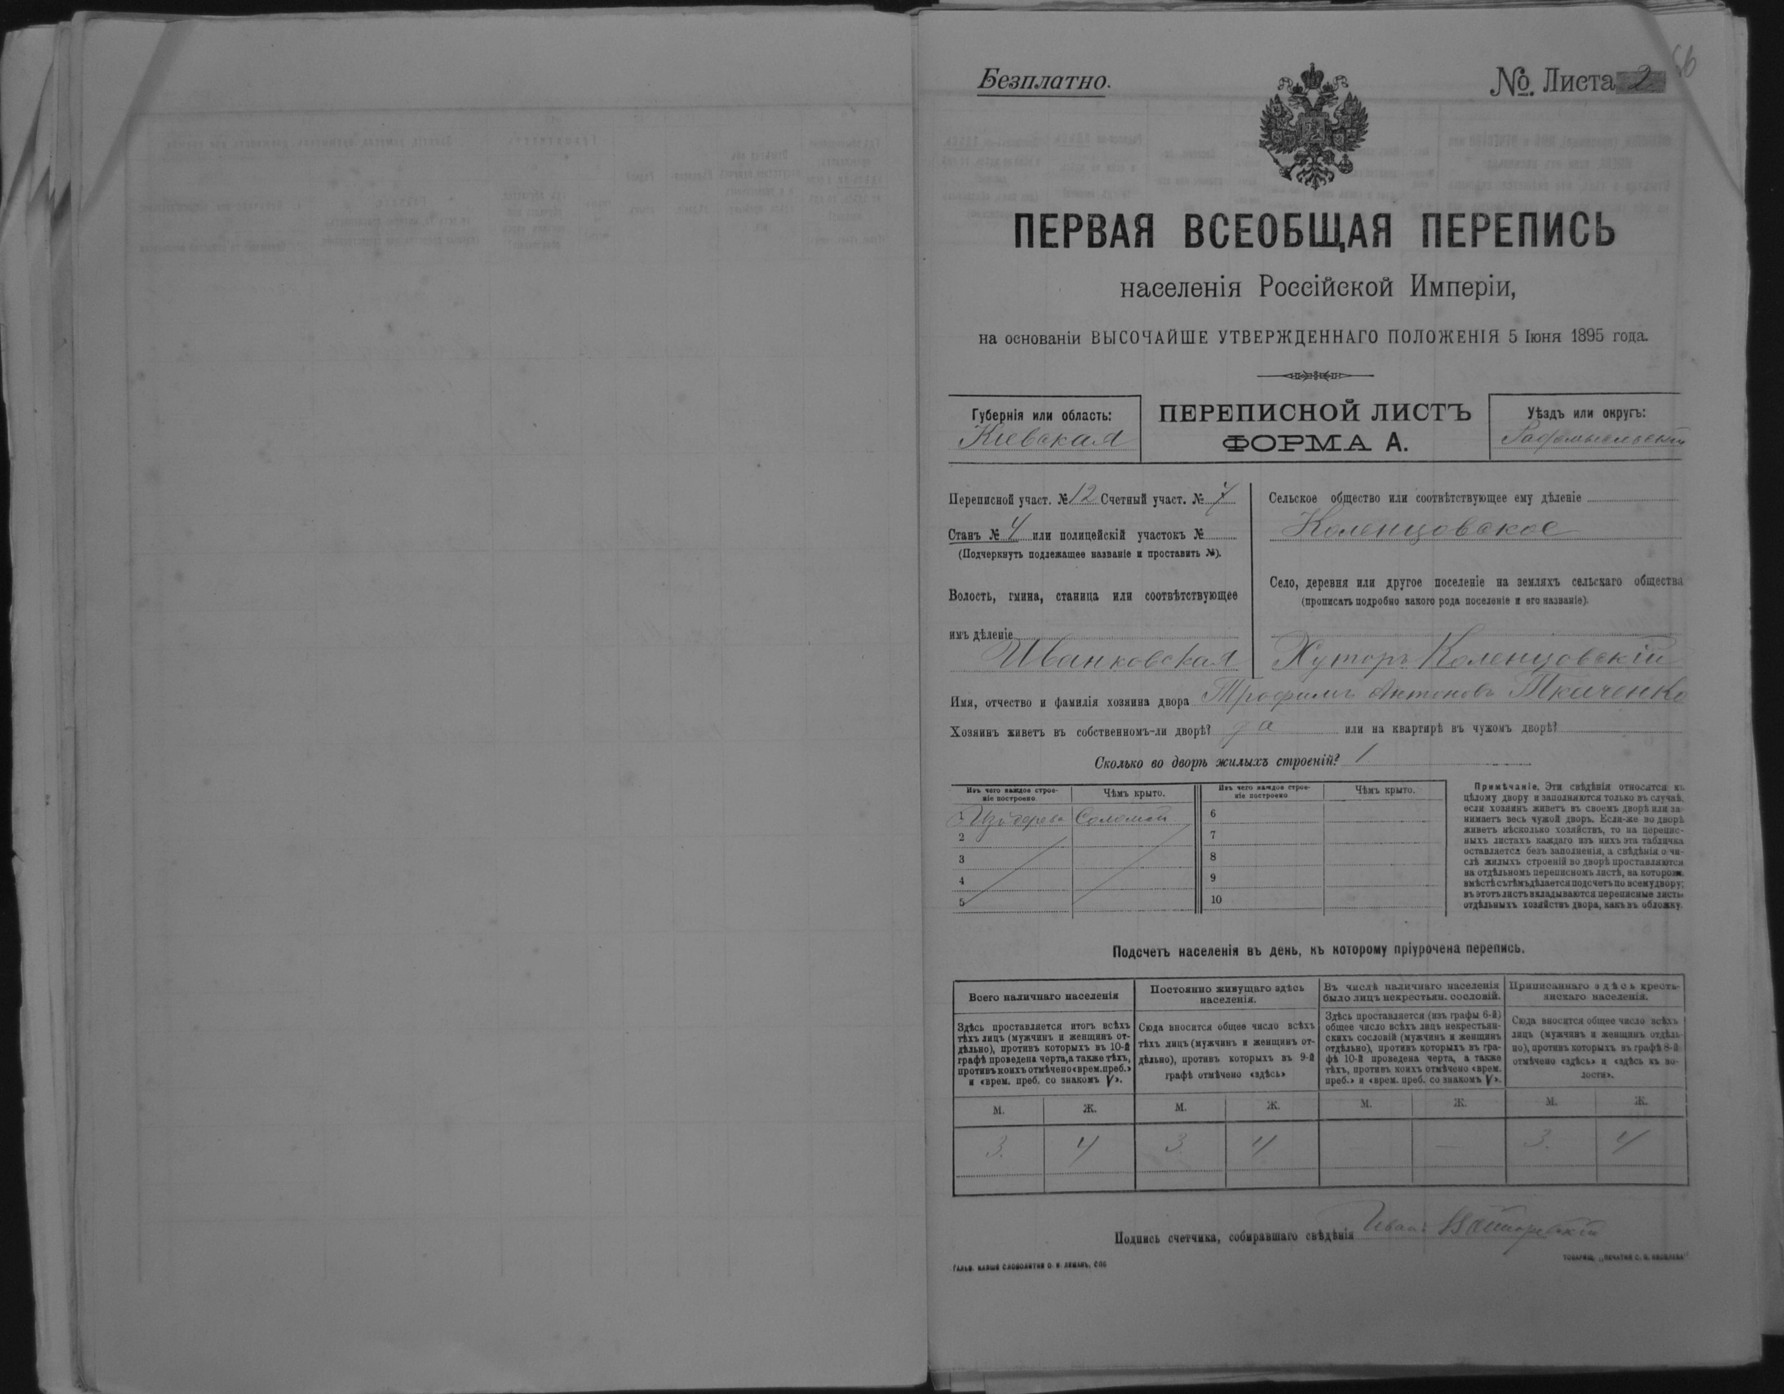 Безплатно.
№ Листа 2
66
ПЕРВАЯ ВСЕОБЩАЯ ПЕРЕПИСЬ
населенія Россійской Имперіи,
на основаніи ВЫСОЧАЙШЕ УТВЕРЖДЕННАГО ПОЛОЖЕНІЯ 5 Іюня 1895 года.
Губернія или область:
Кіевская
ПЕРЕПИСНОЙ ЛИСТЪ
ФОРМА А.
Уѣздъ или округъ:
Радомысльскій
Переписной участ. № 12 Счетный участ. № 7
Станъ № 4 или полицейскій участокъ №
(Подчеркнуть подлежащее названіе и проставить №).
Волость, гмина, станица или соотвѣтствующее
имъ дѣленіе
Иванковская
Сельское общество или соотвѣтствующее ему дѣленіе
Коленцовское
Село, деревня или другое поселеніе на земляхъ сельскаго общества
(прописать подробно какого рода поселеніе и его названіе).
Хуторъ Коленцовскій
Имя, отчество и фамилія хозяина двора Трофимъ Антоновъ Ткаченко
Хозяинъ живетъ въ собственномъ-ли дворѣ? да или на квартирѣ въ чужомъ дворѣ?
Сколько во дворѣ жилыхъ строеній? 1
Изъ чего каждое строе-
ніе построено
Чѣмъ крыто.
Изъ чего каждое строе-
ніе построено
Чѣмъ крыто.
1 Изъ дерева Соломой
2
3
4
5
6
7
8
9
10
Примѣчаніе. Эти свѣдѣнія относятся къ
цѣлому двору и заполняются только въ случаѣ,
если хозяинъ живетъ въ своемъ дворѣ или за-
нимаетъ весь чужой дворъ. Если-же во дворѣ
живетъ нѣсколько хозяйствъ, то на перепис-
ныхъ листахъ каждаго изъ нихъ эта табличка
оставляется безъ заполненія, а свѣдѣнія о чи-
слѣ жилыхъ строеній во дворѣ проставляются
на отдѣльномъ переписномъ листѣ, на которомъ
вмѣстѣ съ тѣмъ дѣлается подсчетъ по всему двору;
въ этотъ листъ вкладываются переписные листы
отдѣльныхъ хозяйствъ двора, какъ въ обложку.
Подсчетъ населенія въ день, къ которому пріурочена перепись.
Всего наличнаго населенія
Здѣсь проставляется итогъ всѣхъ
тѣхъ лицъ (мужчинъ и женщинъ от-
дѣльно), противъ которыхъ въ 10-й
графѣ проведена черта, а также тѣхъ,
противъ коихъ отмѣчено «врем. преб.»
и «врем. преб. со знакомъ V».
Постоянно живущаго здѣсь
населенія.
Сюда вносится общее число всѣхъ
тѣхъ лицъ (мужчинъ и женщинъ от-
дѣльно), противъ которыхъ въ 9-й
графѣ отмѣчено «здѣсь»
Въ числѣ наличнаго населенія
было лицъ некрестьян. сословій.
Здѣсь проставляется (изъ графы 6-й)
общее число всѣхъ лицъ некрестьян-
скихъ сословій (мужчинъ и женщинъ
отдѣльно), противъ которыхъ въ гра-
фѣ 10-й проведена черта, а также
тѣхъ, противъ коихъ отмѣчено «врем.
преб.» и «врем. преб. со знакомъ V».
Приписаннаго здѣсь кресть-
янскаго населенія.
Сюда вносится общее число всѣхъ
лицъ (мужчинъ и женщинъ отдѣль-
но), противъ которыхъ въ графѣ 8-й
отмѣчено «здѣсь» и «здѣсь къ во-
лости».
М. Ж. М. Ж. М. Ж. М. Ж.
3. 4 3. 4 — — 3. 4
Подпись счетчика, собиравшаго свѣдѣнія Иванъ